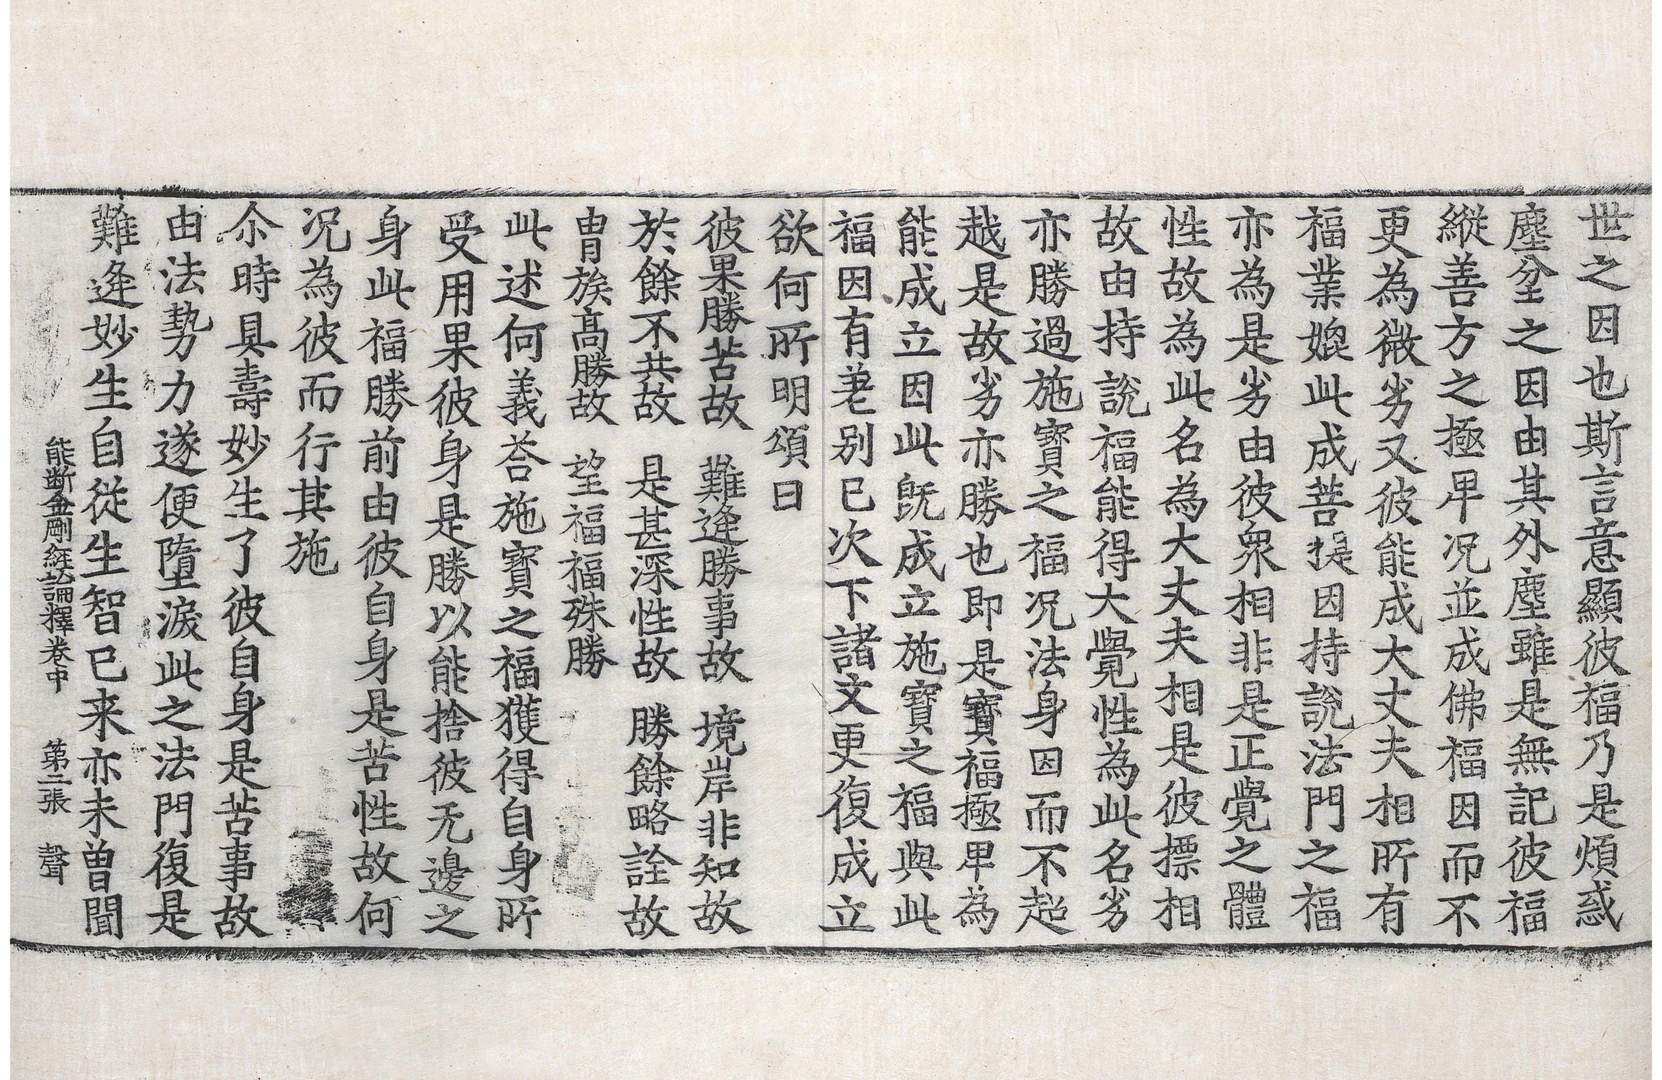 世之因也斯言意顯彼福乃是煩惑
塵坌之因由其外塵雖是無記彼福
縱善方之極卑况並成佛福因而不
更為微劣又彼能成大丈夫相所有
福業媲此成菩提因持說法門之福
亦為是劣由彼衆相非是正覺之體
性故為此名為大丈夫相是彼摽相
故由持說福能得大覺性為此名劣
亦勝過施寶之福况法身因而不超
越是故劣亦勝也即是寶福極卑為
能成立因此旣成立施寶之福與此
福因有差别已次下諸文更復成立
欲何所明頌曰
彼果勝苦故　難逢勝事故　境岸非知故
於餘不共故　是甚深性故　勝餘略詮故
胄族高勝故　望福福殊勝
此述何義荅施寶之福獲得自身所
受用果彼身是勝以能捨彼无邊之
身此福勝前由彼自身是苦性故何
况為彼而行其施
尒時具壽妙生了彼自身是苦事故
由法勢力遂便墮淚此之法門復是
難逢妙生自從生智已来亦未曾聞
能断金剛經論釋卷中　第二張　聲